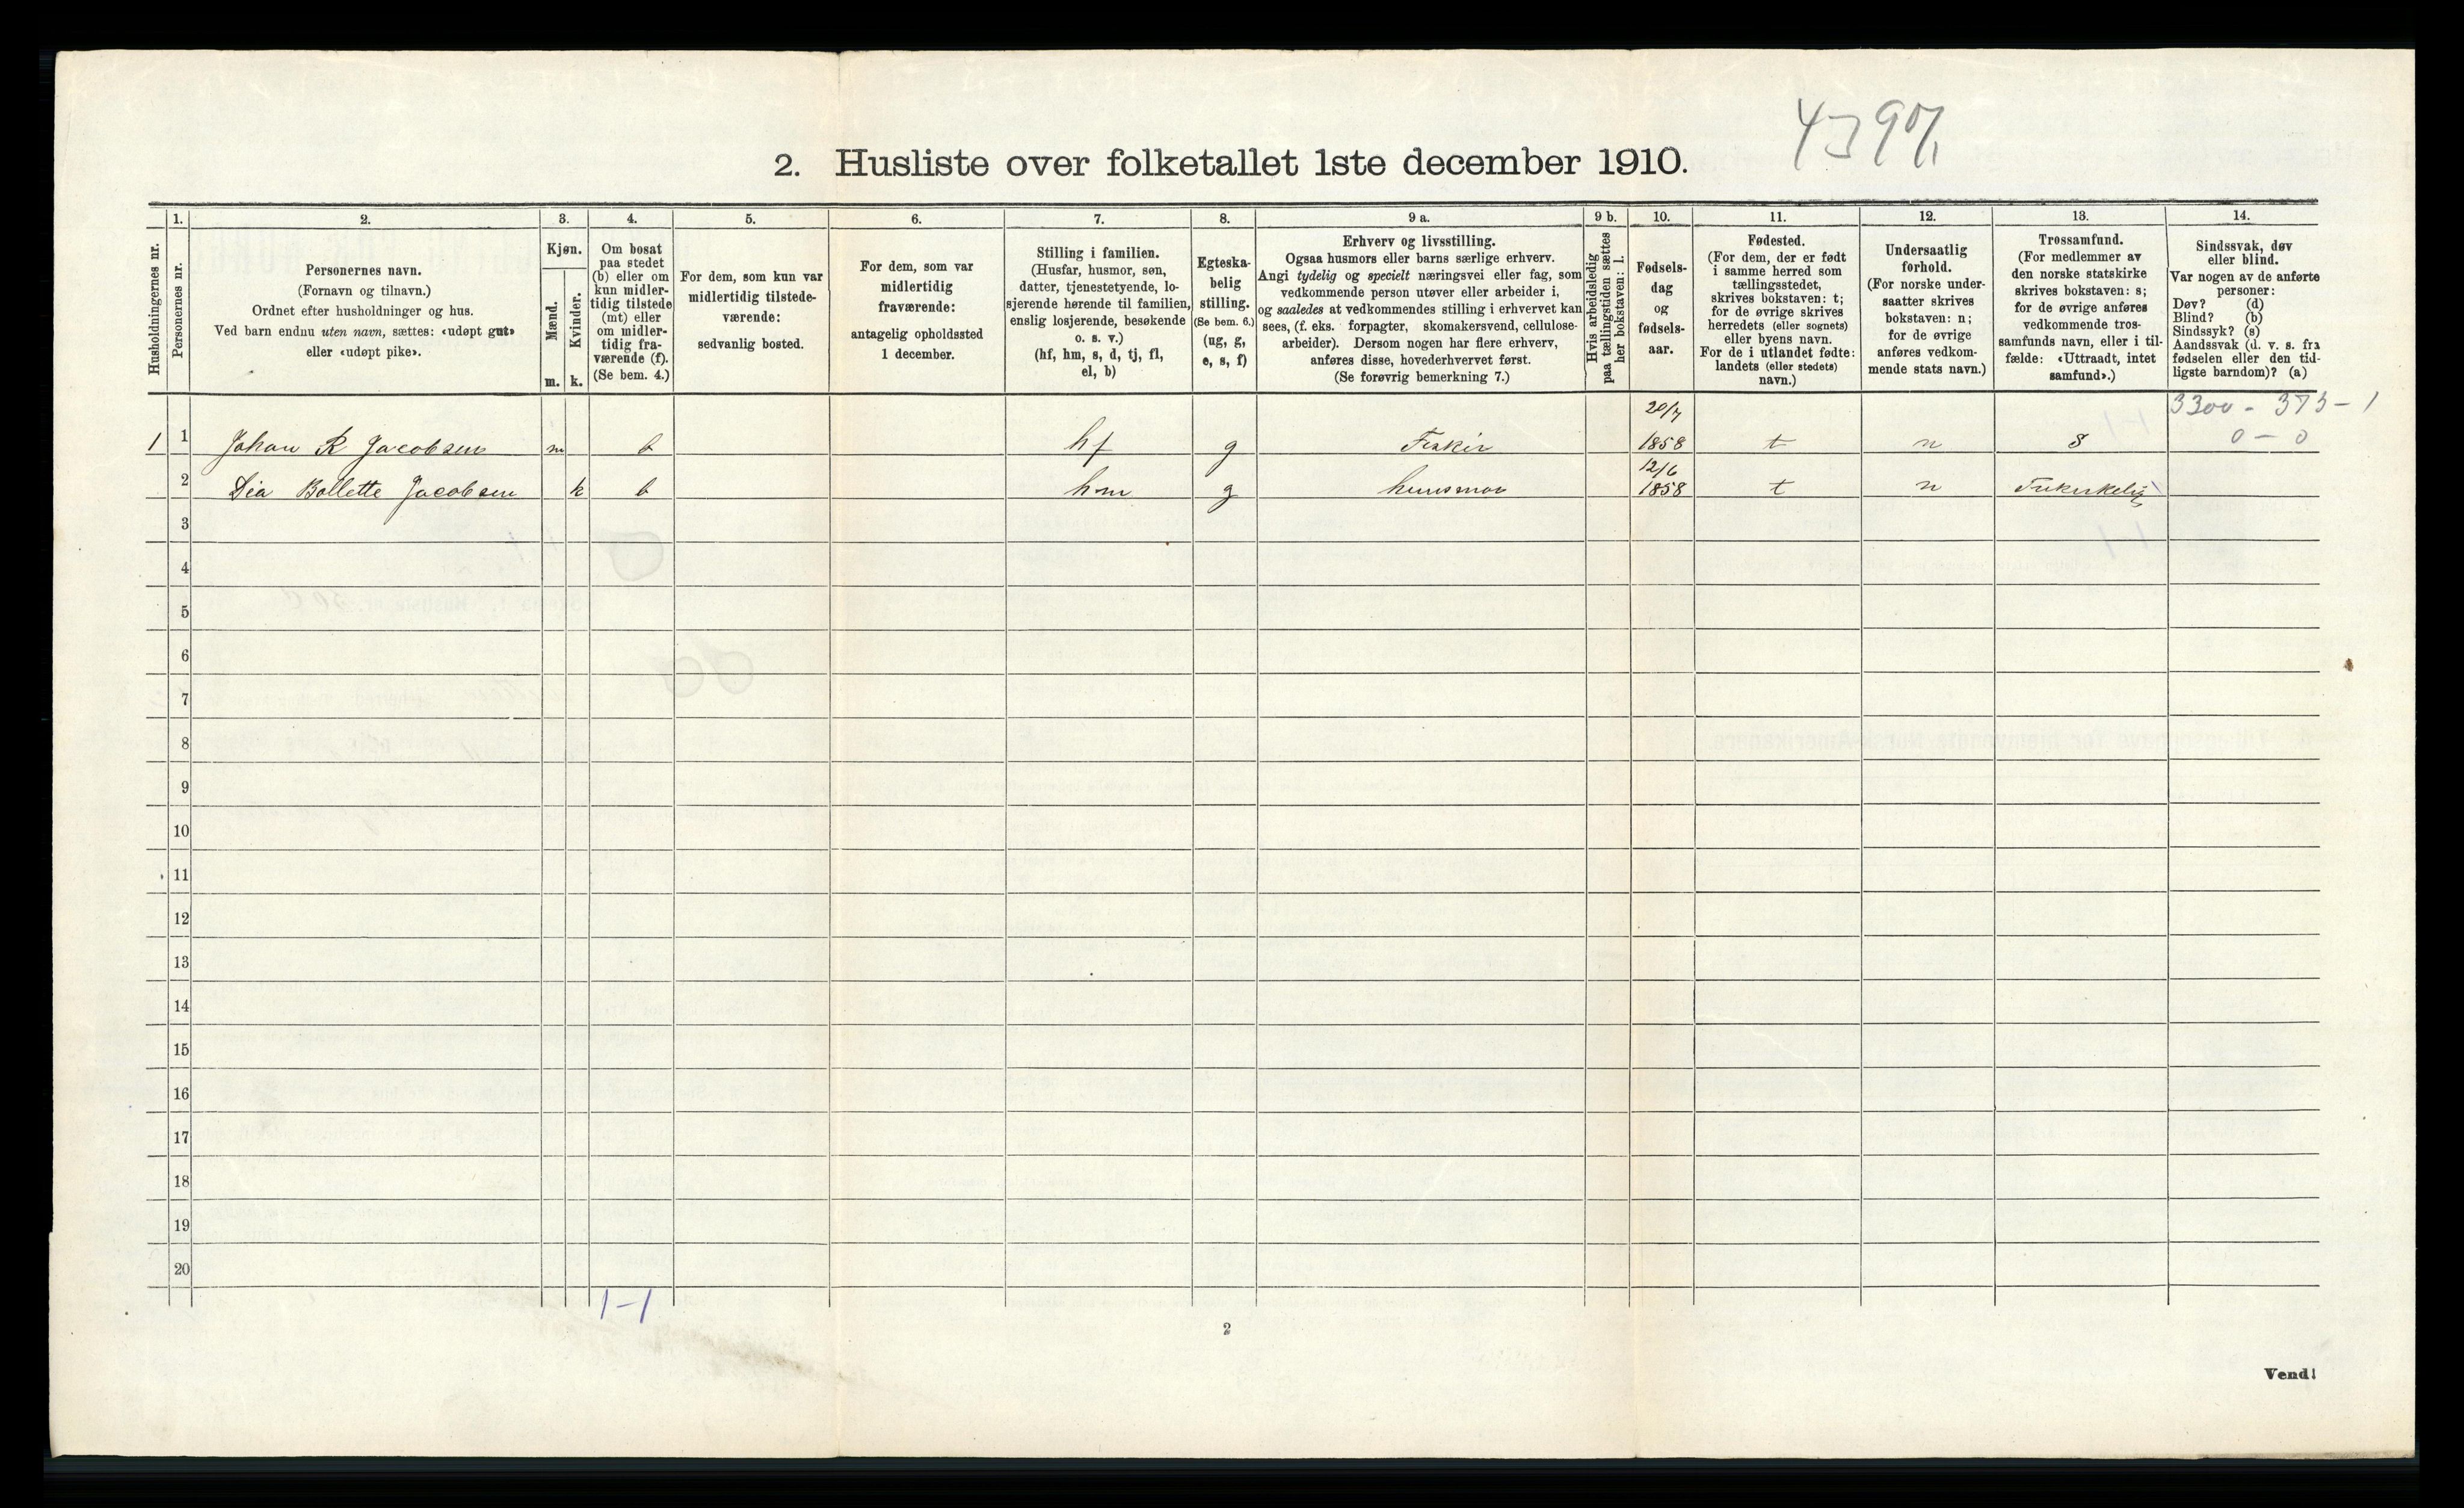 2. Husliste over folketallet 1ste december 1910.
1. 2. 3. 4. 5. 6. 7. 8. 9 a. 9 b. 10. 11. 12. 13. 14.
Husholdningernes nr.
Personernes nr.
Personernes navn.
(Fornavn og tilnavn.)
Ordnet efter husholdninger og hus.
Ved barn endnu uten navn, sættes: «udøpt gut»
eller «udøpt pike».
Kjøn.
Mænd.
Kvinder.
m. k.
Om bosat
paa stedet
(b) eller om
kun midler-
tidig tilstede
(mt) eller
om midler-
tidig fra-
værende (f).
(Se bem. 4.)
For dem, som kun var
midlertidig tilstede-
værende:
sedvanlig bosted.
For dem, som var
midlertidig
fraværende:
antagelig opholdssted
1 december.
Stilling i familien.
(Husfar, husmor, søn,
datter, tjenestetyende, lo-
sjerende hørende til familien,
enslig losjerende, besøkende
o. s. v.)
(hf, hm, s, d, tj, fl,
el, b)
Egteska-
belig
stilling.
(Se bem. 6.)
(ug, g,
e, s, f)
Erhverv og livsstilling.
Ogsaa husmors eller barns særlige erhverv.
Angi tydelig og specielt næringsvei eller fag, som
vedkommende person utøver eller arbeider i,
og saaledes at vedkommendes stilling i erhvervet kan
sees, (f. eks. forpagter, skomakersvend, cellulose-
arbeider). Dersom nogen har flere erhverv,
anføres disse, hovederhvervet først.
(Se forøvrig bemerkning 7.)
Hvis arbeidsledig
paa tællingstiden sættes
her bokstaven: l.
Fødsels-
dag
og
fødsels-
aar.
Fødested.
(For dem, der er født
i samme herred som
tællingsstedet,
skrives bokstaven: t;
for de øvrige skrives
herredets (eller sognets)
eller byens navn.
For de i utlandet fødte:
landets (eller stedets)
navn.)
Undersaatlig
forhold.
(For norske under-
saatter skrives
bokstaven: n;
for de øvrige
anføres vedkom-
mende stats navn.)
Trossamfund.
(For medlemmer av
den norske statskirke
skrives bokstaven: s;
for de øvrige anføres
vedkommende tros-
samfunds navn, eller i til-
fælde: «Uttraadt, intet
samfund».)
Sindssvak, døv
eller blind.
Var nogen av de anførte
personer:
Døv? (d)
Blind? (b)
Sindssyk? (s)
Aandssvak (d. v. s. fra
fødselen eller den tid-
ligste barndom)? (a)
20/7 3300 - 373 - 1
1 1 Johan R Jacobsen m b hf g Fisker 1858 t n s 0 - 0
12/6
2 Dia Bollette Jacobsen k b hm g huusmor 1858 t n
3
4
5
6
7
8
9
10
11
12
13
14
15
16
17
18
19
20
1-1
2
Vend!